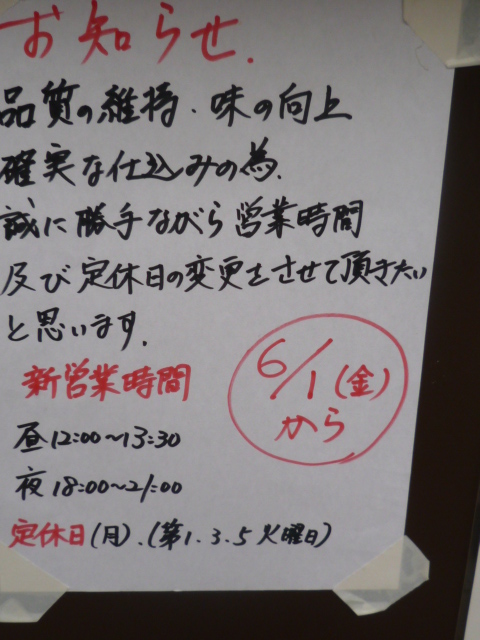 お知らせ.
品質の維持、味の向上
確実な仕込みの為、
誠に勝手ながら営業時間
及び定休日の変更をさせて頂きたい
と思います.
新営業時間
6/1(金)
から
昼12:00〜13:30
夜18:00〜21:00
定休日(月).(第1.3.5火曜日)